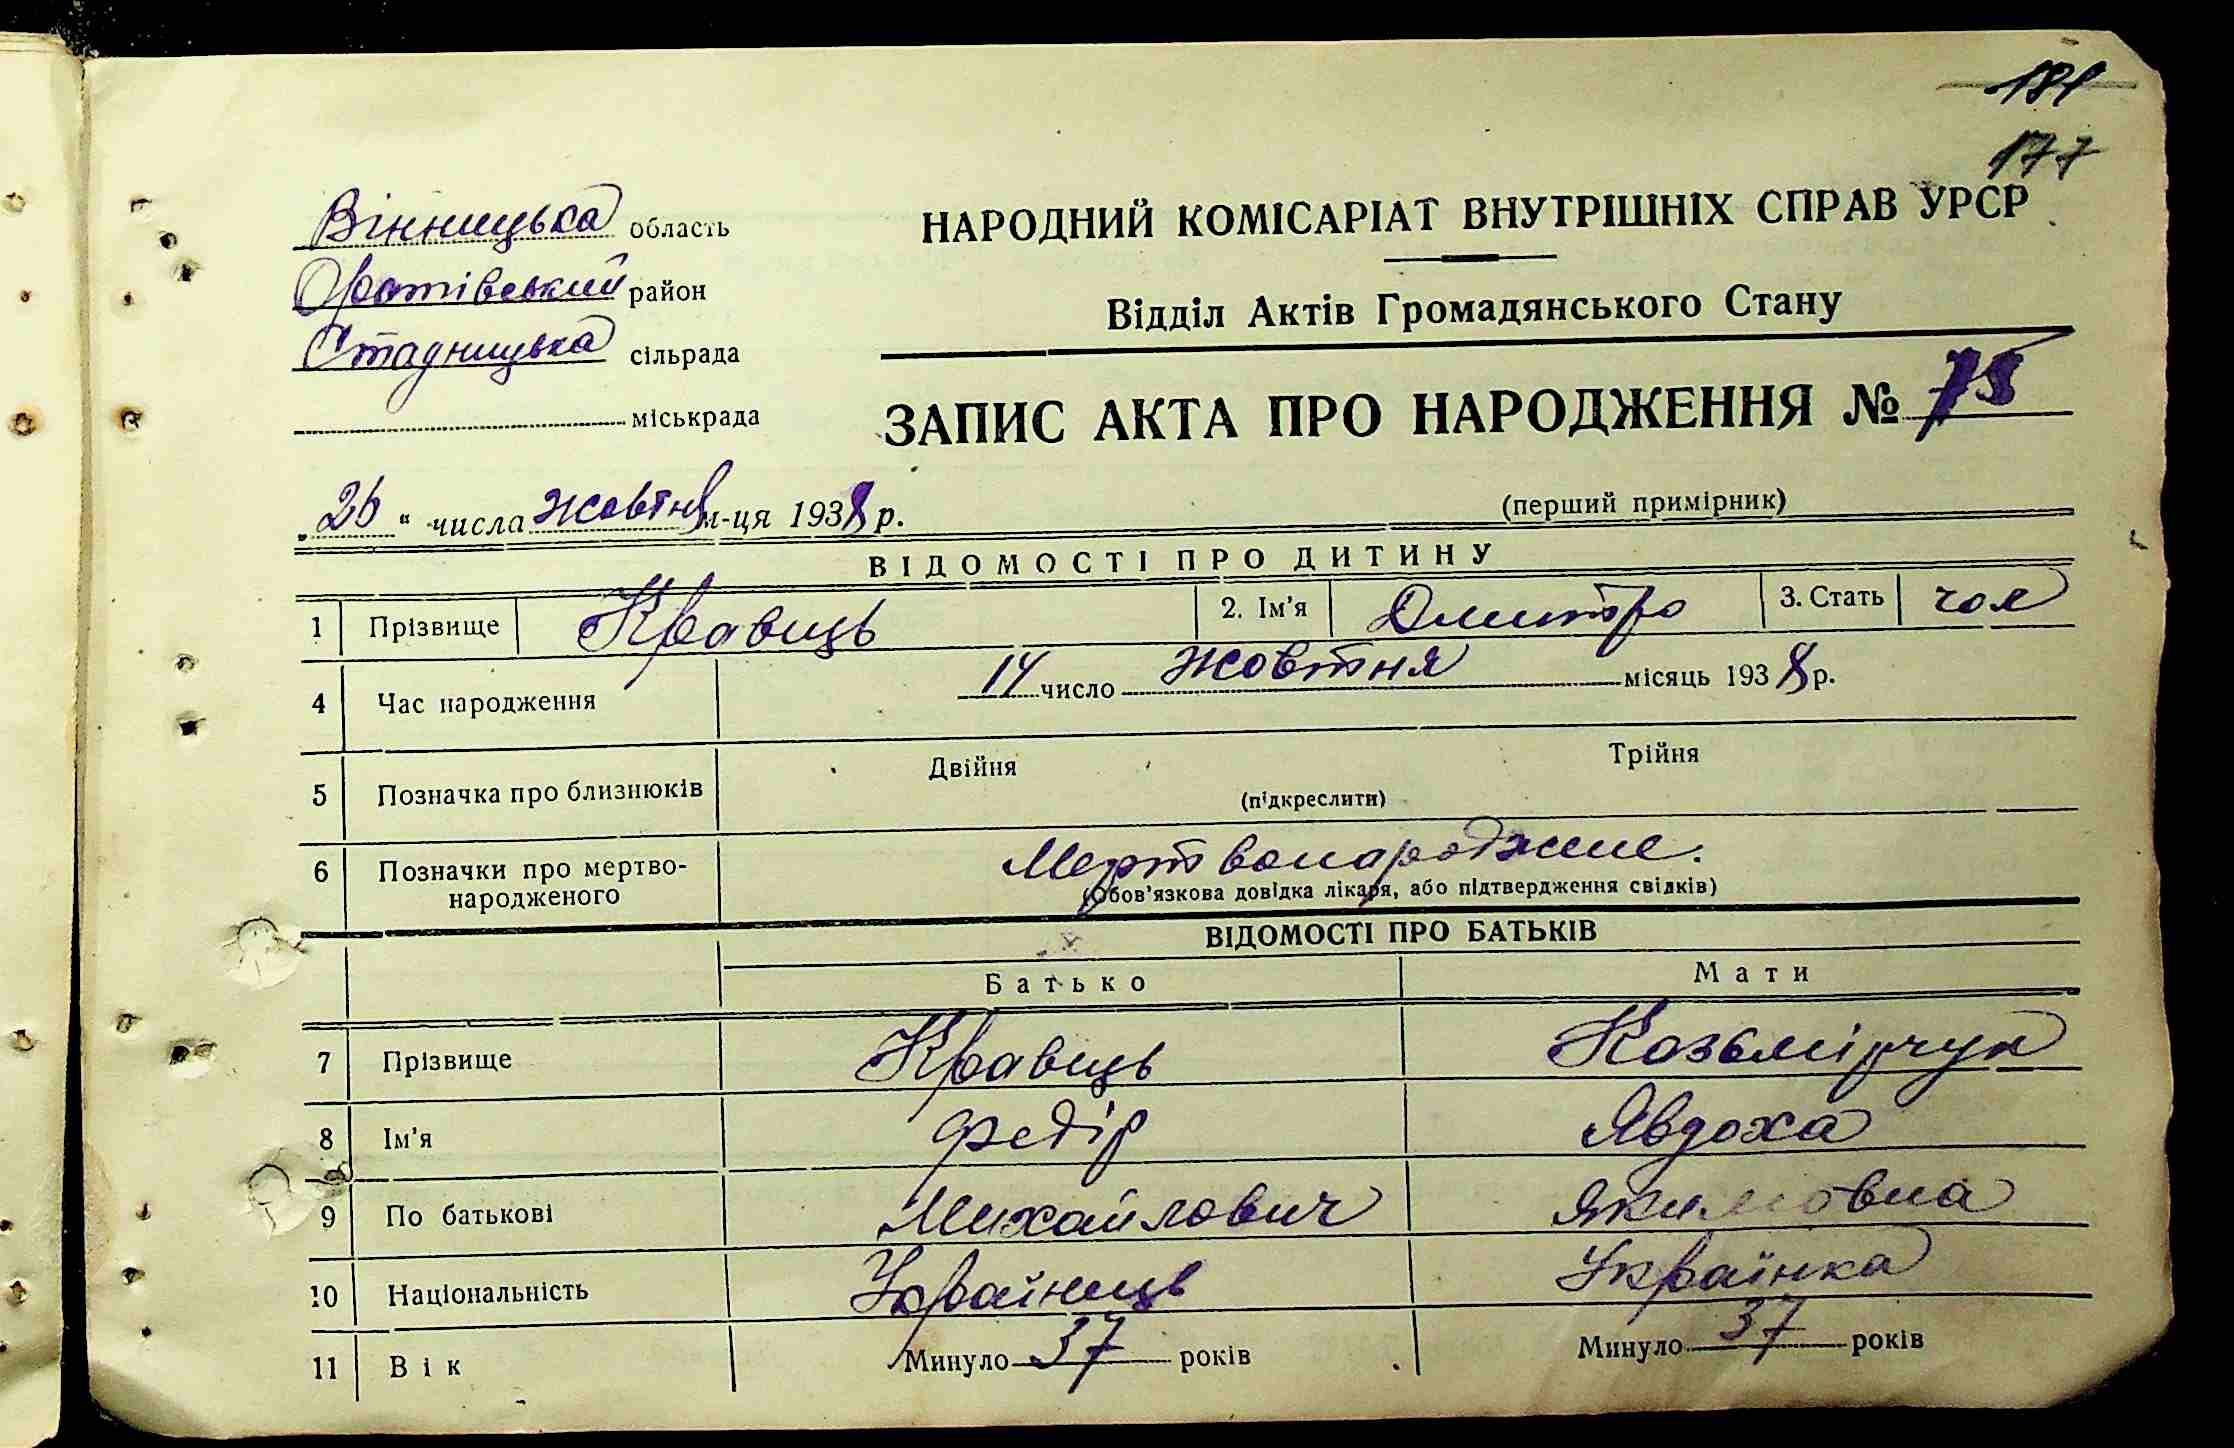 181
177
Вінницька область
Оратівський район
Стадницька сільрада
міськрада
НАРОДНИЙ КОМІСАРІАТ ВНУТРІШНІХ СПРАВ УРСР
Відділ Актів Громадянського Стану
ЗАПИС АКТА ПРО НАРОДЖЕННЯ № 75
(перший примірник)
„26“ числа жовтня м-ця 1938 р.
ВІДОМОСТІ ПРО ДИТИНУ
1 Прізвище Кравиць 2. Ім'я Дмитро 3. Стать чол
4 Час народження 14 число жовтня місяць 1938 р.
5 Позначка про близнюків Двійня Трійня
(підкреслити)
6 Позначки про мертво-
народженого
Мертвонароджене.
(Обов'язкова довідка лікаря, або підтвердження свідків)
ВІДОМОСТІ ПРО БАТЬКІВ
Батько Мати
7 Прізвище Кравиць Козьмірчук
8 Ім'я Федір Явдоха
9 По батькові Михайлович Якимовна
10 Національність Українець Українка
11 Вік Минуло 37 років Минуло 37 років